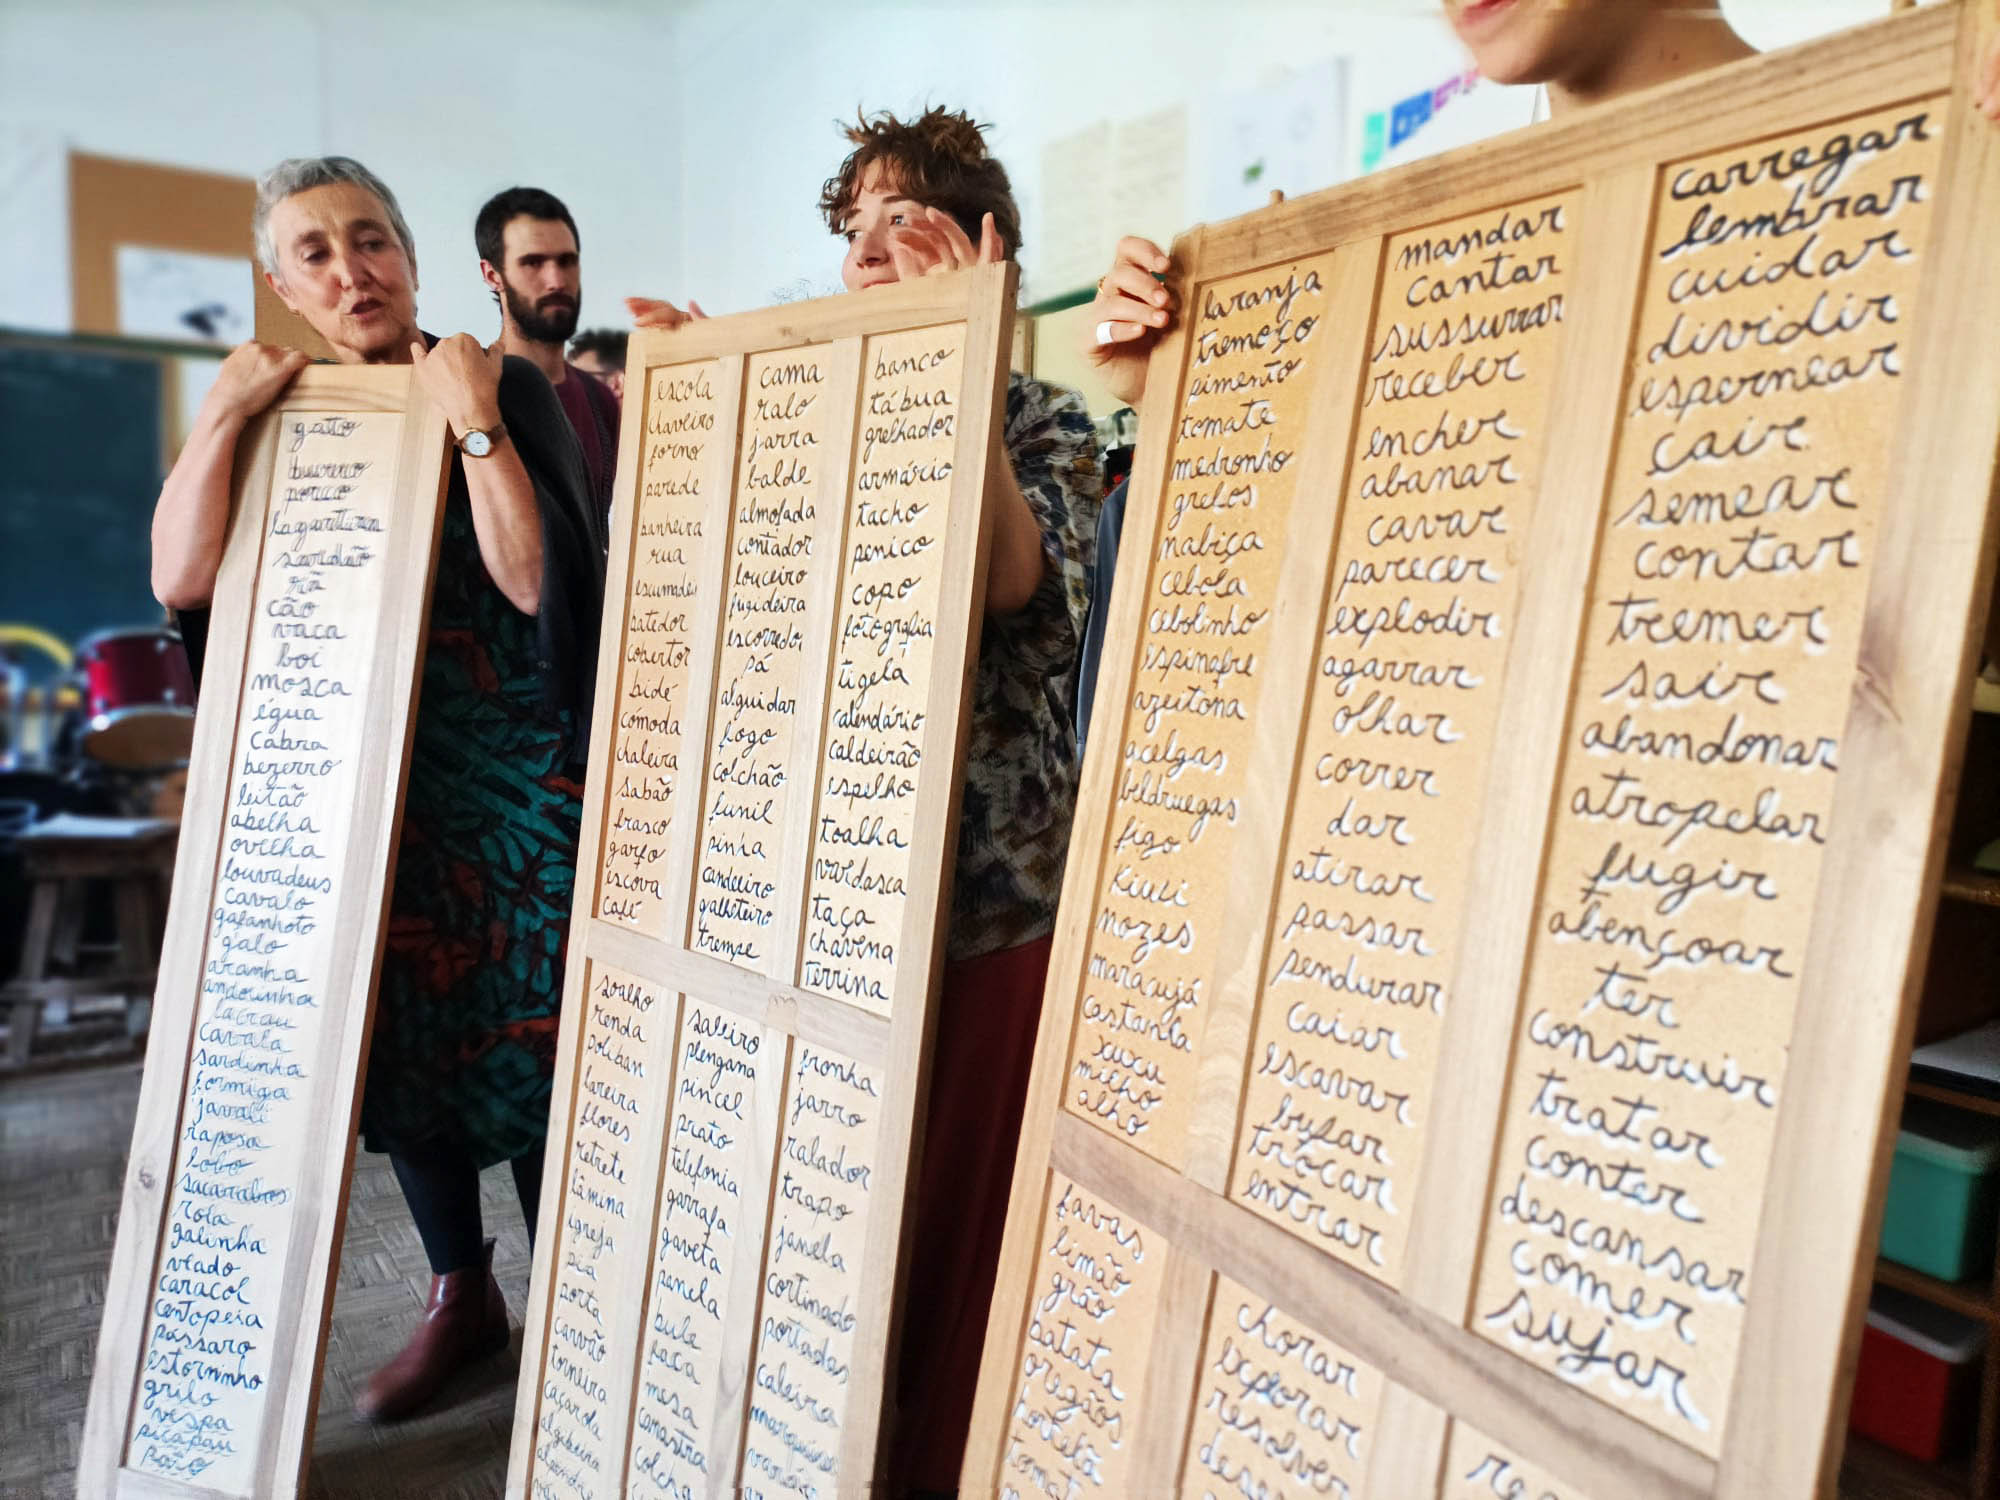 gato
burro
porco
lagartixa
sardão
rã
cão
vaca
boi
mosca
égua
cabra
bezerro
leitão
abelha
ovelha
louvadeus
cavalo
gafanhoto
galo
aranha
andorinha
lacrau
cavala
sardinha
formiga
javali
raposa
lobo
sacarabos
rola
galinha
veado
caracol
centopeia
pássaro
estorninho
grilo
vespa
picapau
escola
chaveiro
forno
parede
banheira
rua
batedor
cobertor
bidé
cómoda
chaleira
sabão
frasco
garfo
escova
café
cama
ralo
jarra
balde
almofada
contador
louceiro
fugideira
pá
alguidar
fogo
colchão
funil
pinha
candeeiro
galheteiro
trempe
banco
tábua
grelhador
armário
tacho
penico
copo
fotografia
tigela
calendário
caldeirão
espelho
toalha
vardasca
taça
chávena
terrina
soalho
renda
poliban
lareira
flores
retrete
lâmina
igreja
pia
porta
carvão
torneira
caçarola
algibeira
alpendre
saleiro
plengana
pincel
prato
telefonia
garrafa
gaveta
panela
bule
faca
mesa
canastra
colcha
fronha
jarro
ralador
trapo
janela
cortinado
portadas
caleira
laranja
tremoço
pimento
tomate
medronho
grelos
nabiça
cebola
cebolinho
espinafre
azeitona
acelgas
beldruegas
figo
kiwi
nozes
maracujá
castanha
xuxu
milho
alho
mandar
cantar
sussurrar
receber
encher
abanar
cavar
parecer
explodir
agarrar
olhar
correr
dar
atirar
passar
pendurar
caiar
escavar
bufar
trocar
entrar
carregar
lembrar
cuidar
dividir
espernear
cair
semear
contar
tremer
sair
abandonar
atropelar
fugir
abençoar
ter
construir
tratar
conter
descansar
comer
sujar
favas
limão
grão
batata
oregãos
hortelã
chorar
explorar
resolver